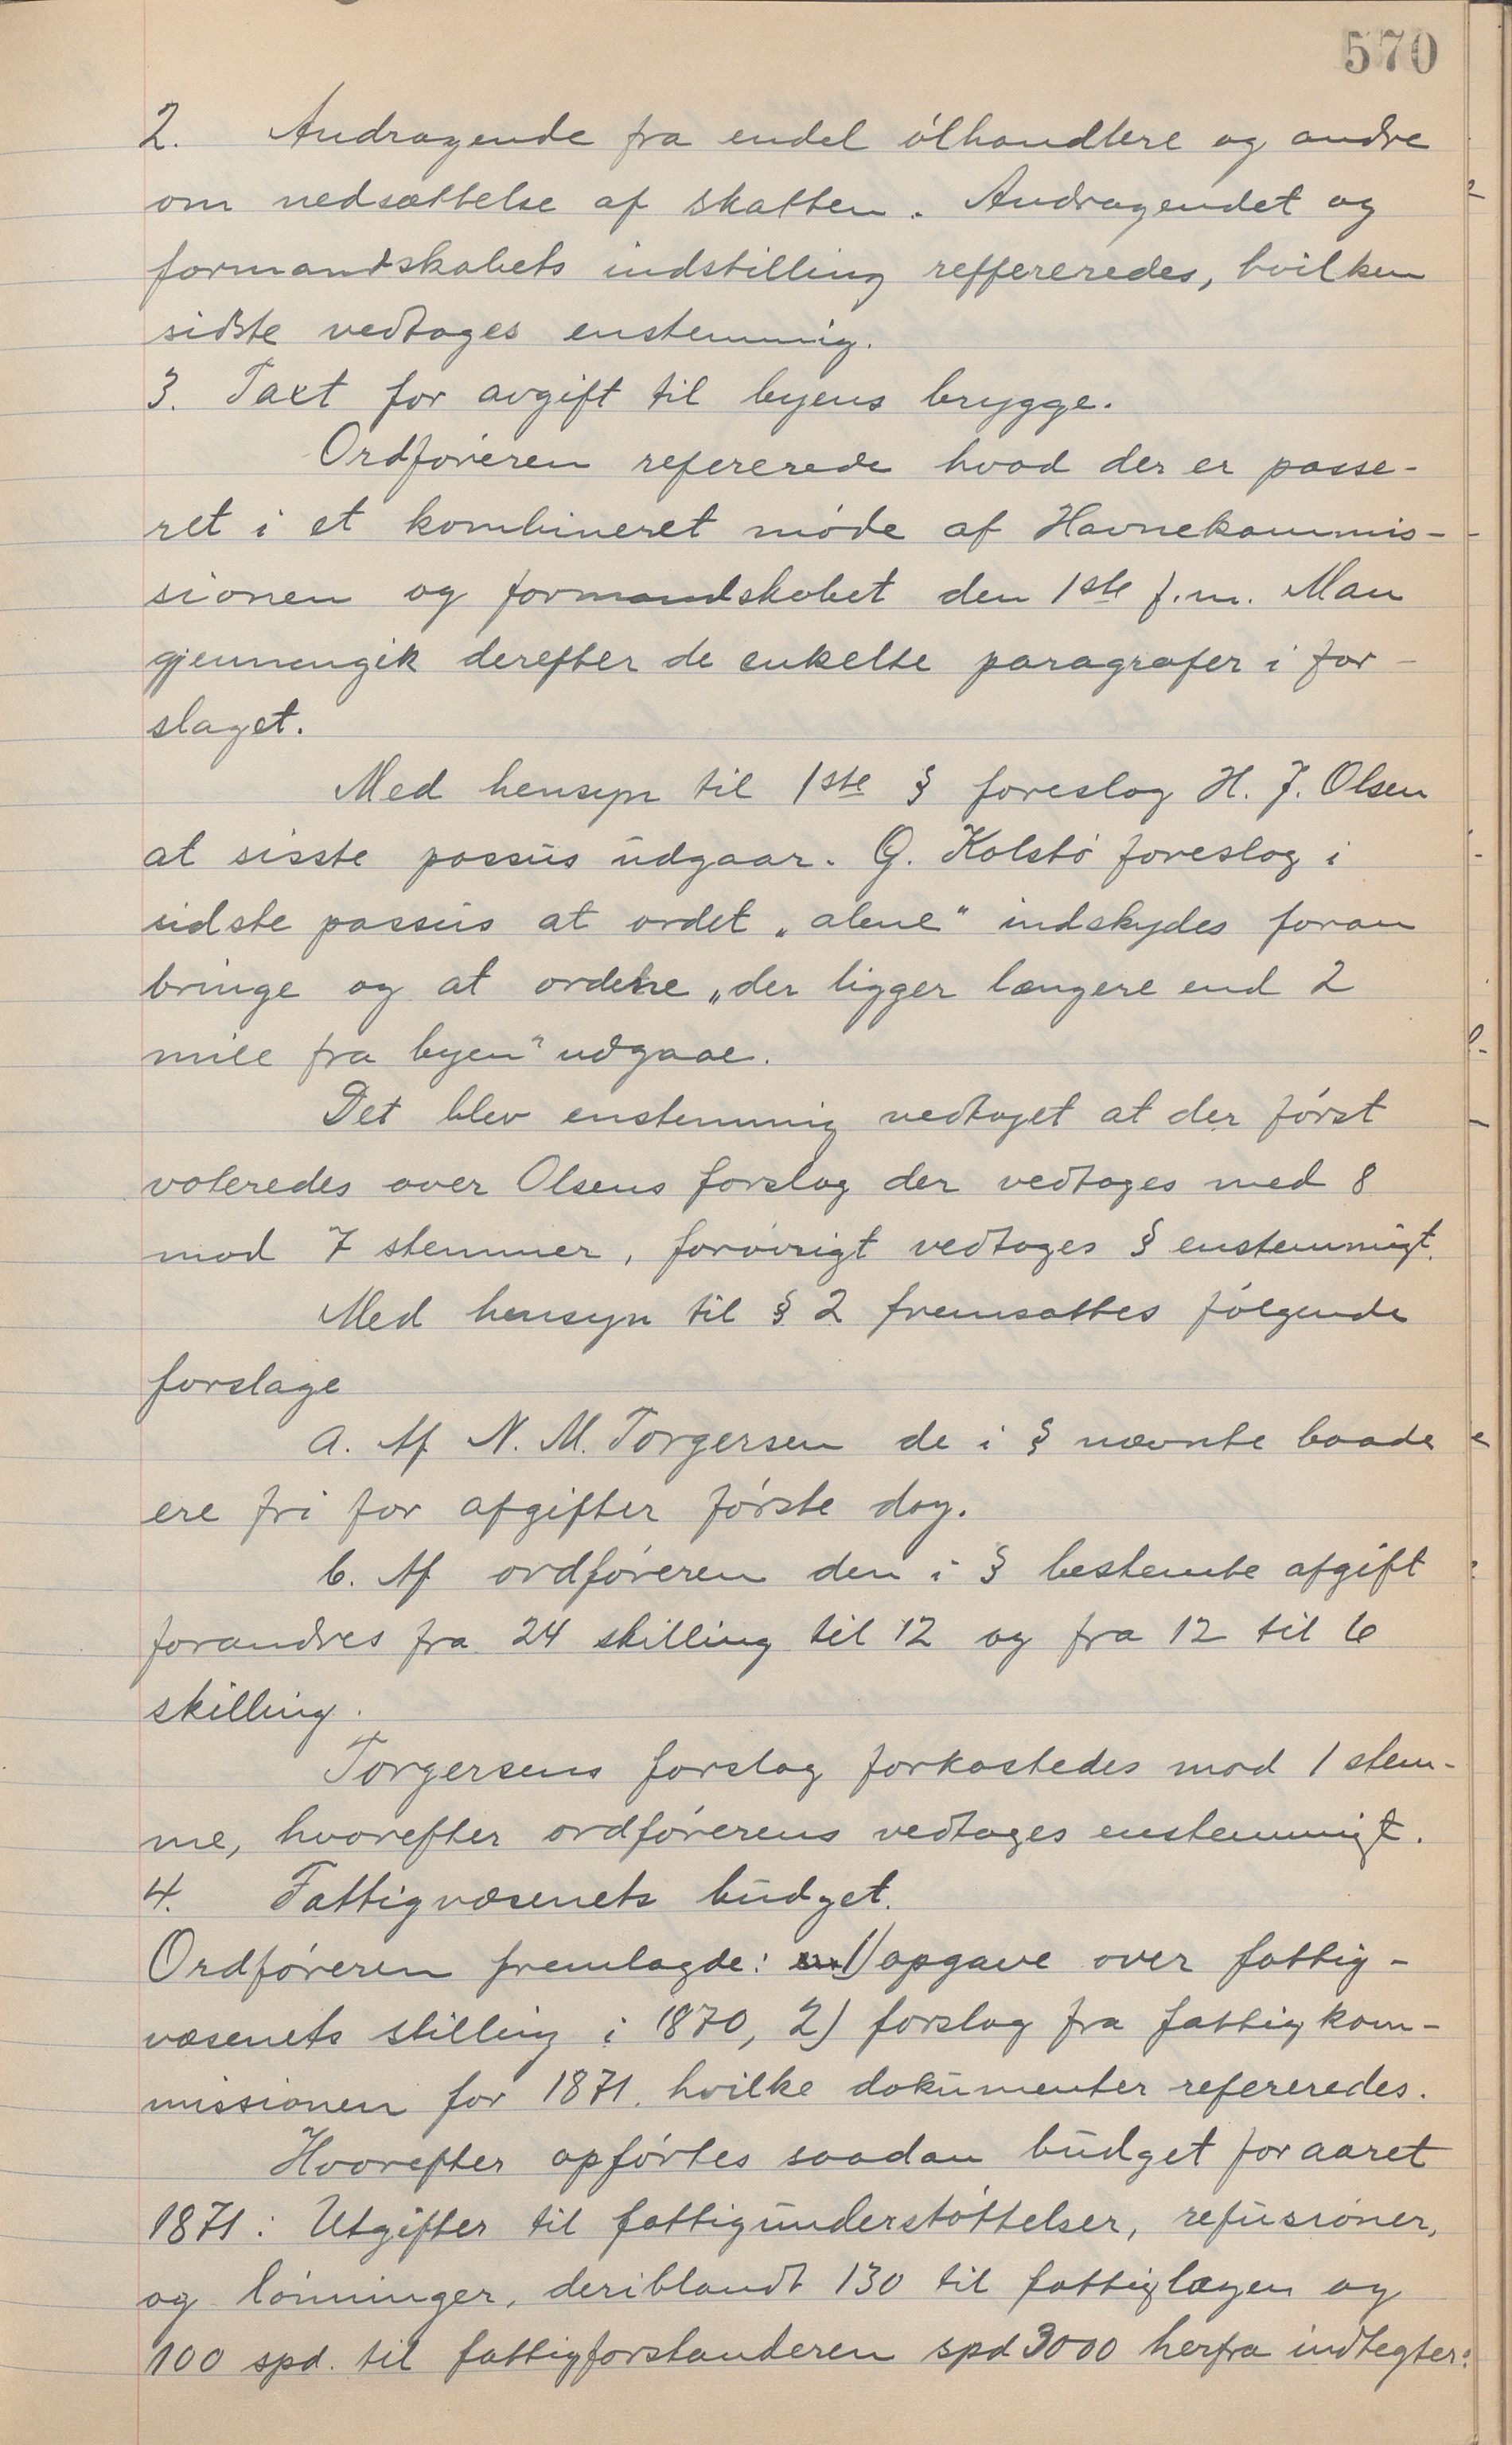 570
2. Andragende fra endel ólhandlere og andre
om nedsættelse af skatten. Andragendet og
formandskabets indstilling reffereredes, hvilken
sidste vedtages enstemmig.
3. Taxt for avgift til byens brygge.
Ordfóreren refererede hvad der er passe-
ret i et kombineret móde af Havnekommis-
sionen og formandskabet den 1ste f.m. Man
gjennemgik derefter de enkelte paragrafer i for-
slaget.
Med hensyn til 1ste § foreslog H. J. Olsen
at sisste passus udgaar. G. Kolstó foreslog i
sidste passus at ordet „alene" indskydes foran
bringe og at ordene „der ligger længere end 2
mile fra byen" udgaae.
Det blev enstemmig vedtaget at der fórst
voteredes over Olsens forslag der vedtages med 8
mod 7 stemmer, foróvrigt vedtages § enstemmigt.
Med hensyn til § 2 fremsattes fólgende
forslage
a. Af N. M. Torgersen de i § nævnte baade
ere fri for afgifter fórste dag.
b. Af ordfóreren den i § bestemte afgift
forandres fra 24 skilling til 12 og fra 12 til 6
skilling.
Torgersens forslag forkastedes mod 1 stem-
me, hvorefter ordfórerens vedtages enstemmigt.
4. Fattigvæsenets budget.
Ordfóreren fremlagde: 1) opgave over fattig-
væsenets stilling i 1870, 2) forslag fra fattigkom-
missionen for 1871. hvilke dokumenter refereredes.
Hvorefter opfórtes saadan budget for aaret
1871: Utgifter til fattigunderstóttelser, refusioner,
og lónninger, deriblandt 130 til fattiglægen og
100 spd. til fattigforstanderen spd 3000 herfra indtegter: